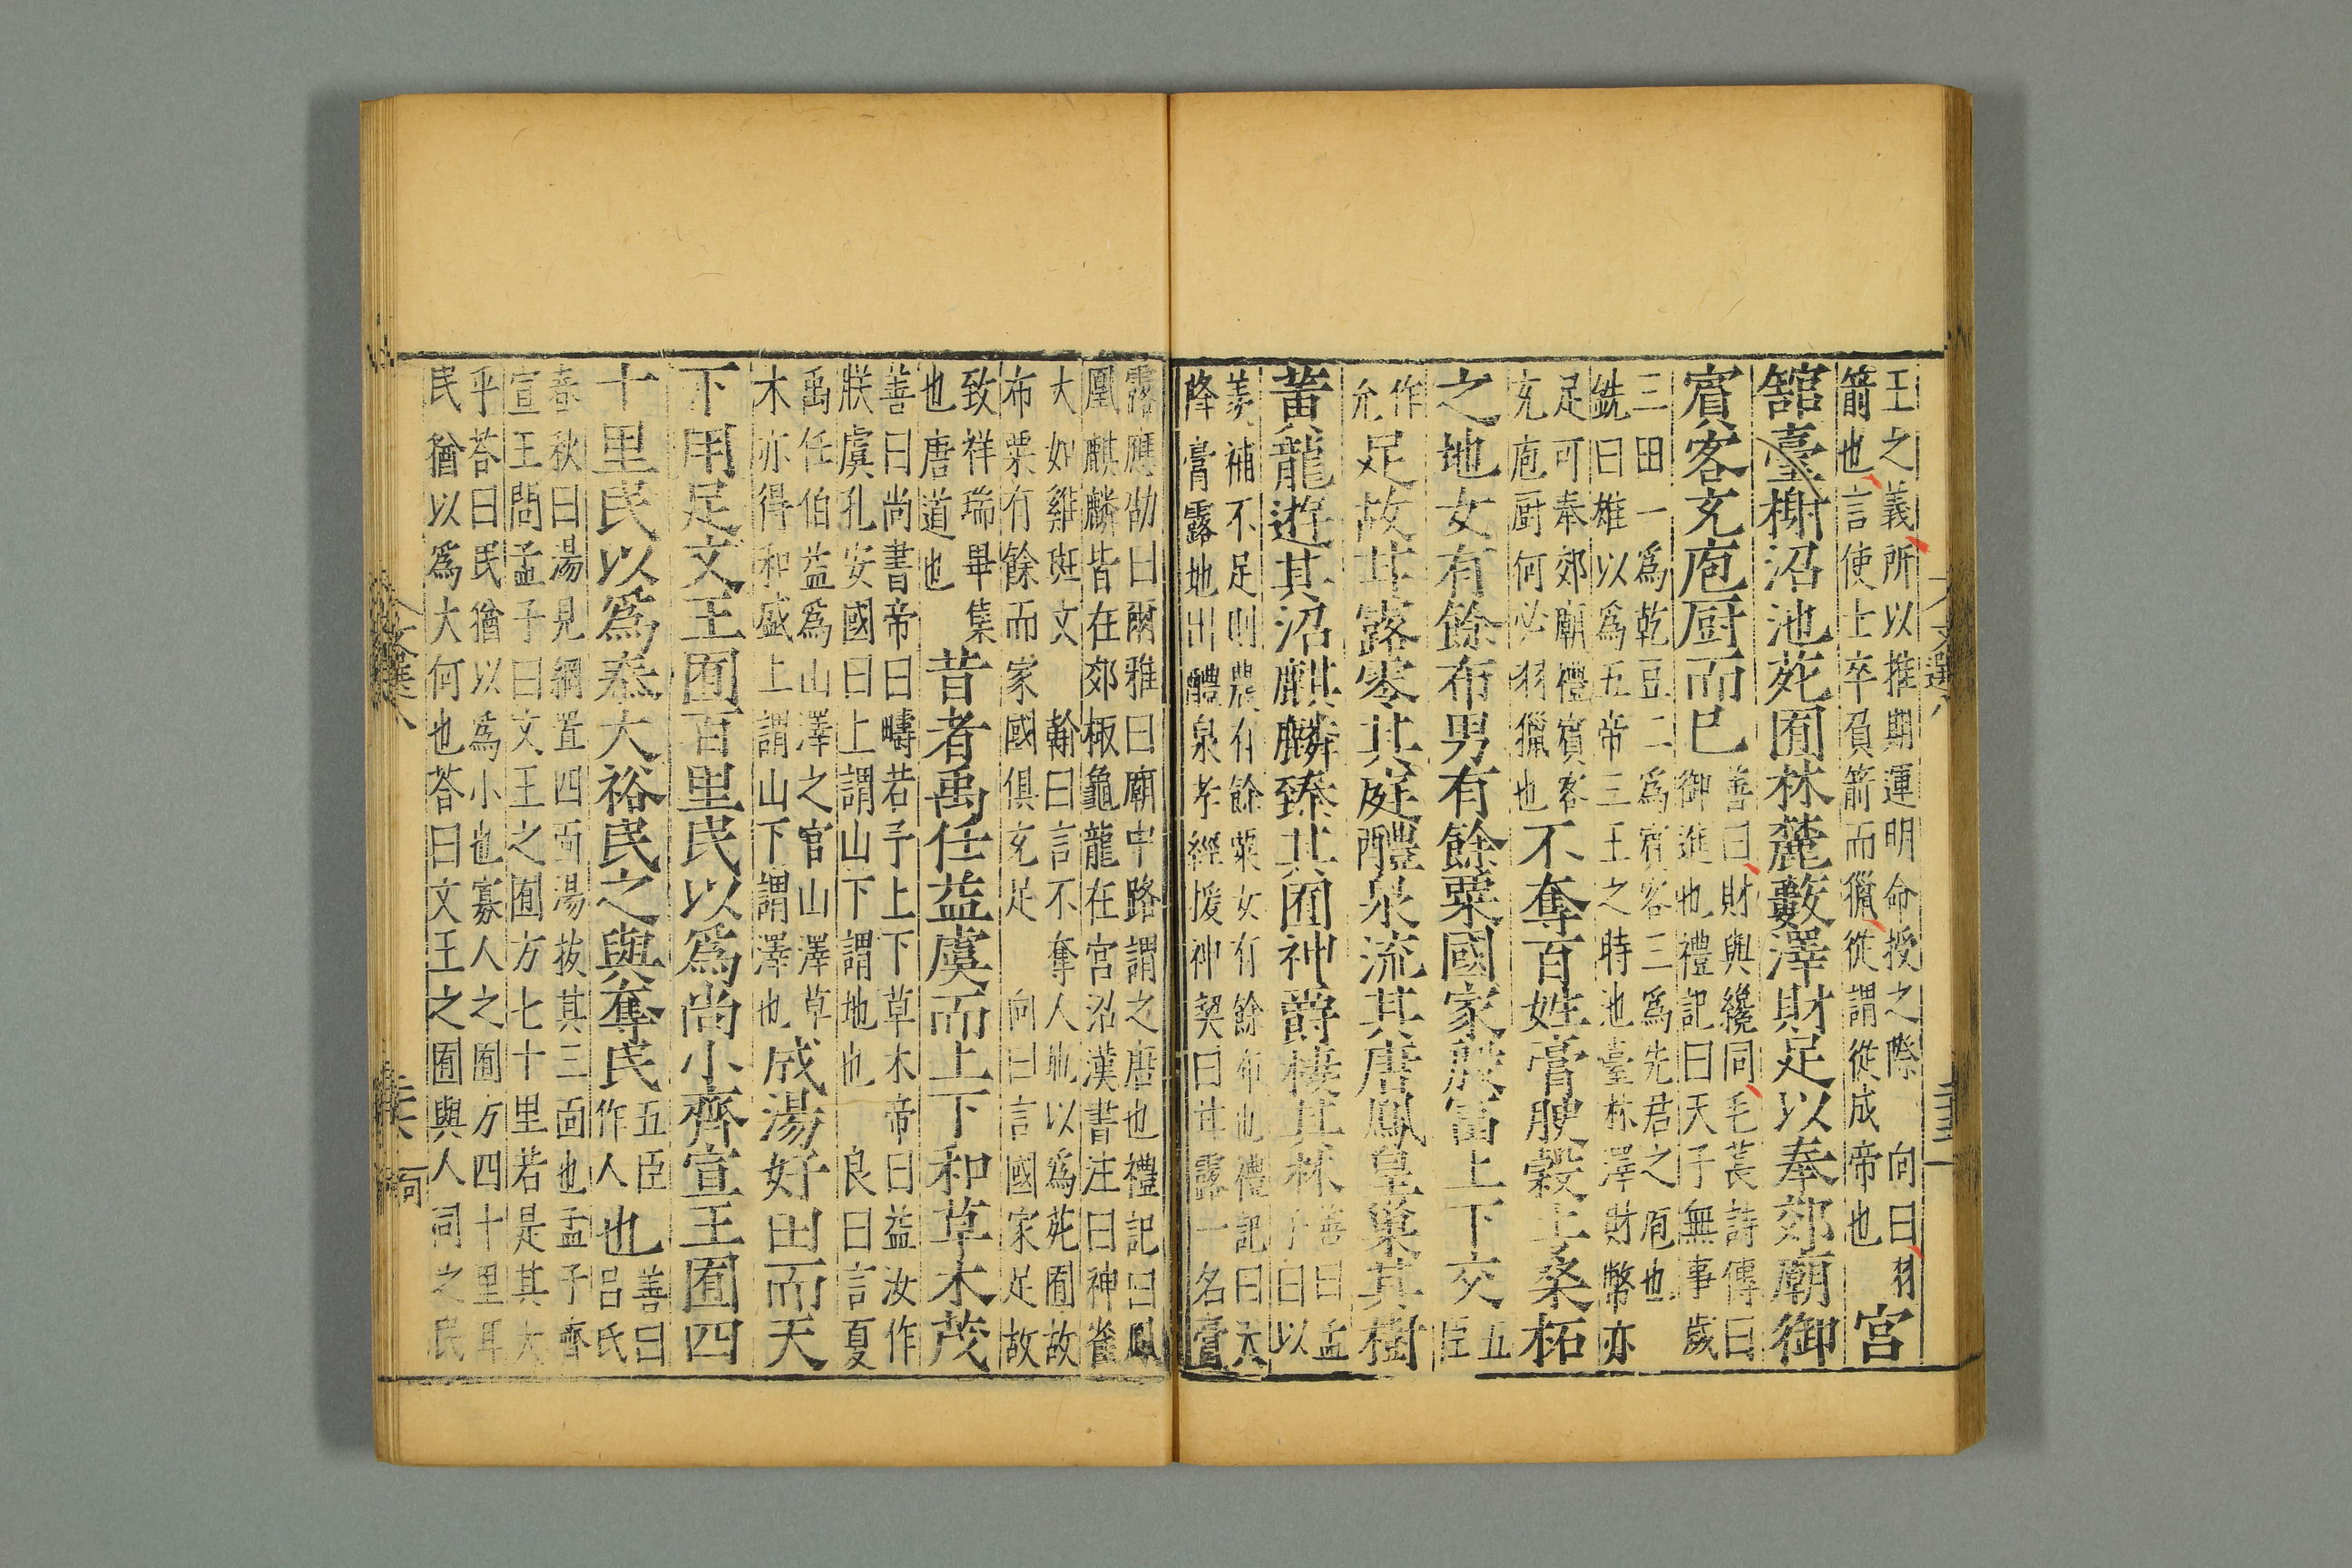 王之義所以推期運明命授之際　向曰羽
箭也言使士卒負箭而獵從謂從成帝也
宮
館臺榭沼池苑囿林麓藪澤財足以奉郊廟御
賔客充庖厨而已
善曰財與纔同毛萇詩傳曰
御進也禮記曰天子無事歲
三田一爲乾豆二爲賓客三爲先君之庖也
銑曰雄以爲五帝三王之時池臺林澤財幣亦
足可奉郊廟禮賓客
充庖厨何必羽獵也
不奪百姓膏腴穀土桑柘
之地女有餘布男有餘粟國家殷富上下交
五臣
作
允
足故甘露零其庭醴泉流其唐鳳皇巢其樹
黄龍遊其沼麒麟臻其囿神爵棲其林
善曰孟
子曰以
羡補不足則農有餘粟女有餘布也禮記曰天
降膏露地出醴泉孝經援神契曰甘露一名膏
露應劭曰爾雅曰廟中路謂之唐也禮記曰鳳
凰麒麟皆在郊棷龜龍在宮沼漢書注曰神雀
大如雞斑文　翰曰言不奪人地以爲苑囿故
布粟有餘而家國俱充足　向曰言國家足故
致祥瑞畢集
也唐道也
昔者禹任益虞而上下和草木茂
善曰尚書帝曰疇若予上下草木帝曰益汝作
朕虞孔安國曰上謂山下謂地也　良曰言夏
禹任伯益爲山澤之官山澤草
木亦得和盛上謂山下謂澤也
成湯好田而天
下用足文王囿百里民以爲尚小齊宣王囿四
十里民以爲泰大裕民之與奪民
五臣
作人
也
善曰
吕氏
春秋曰湯見網置四面湯拔其三面也孟子齊
宣王問孟子曰文王之囿方七十里若是其大
乎荅曰民猶以爲小也寡人之囿方四十里耳
民猶以爲大何也荅曰文王之囿與人同之民
文選八